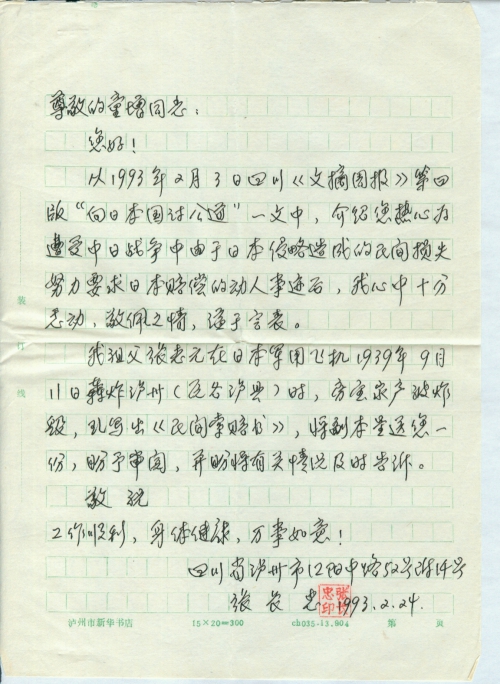 尊敬的童增同志：
您好！
从1993年2月3日四川《文摘周报》第四
版“向日本国讨公道”一文中，介绍您热心为
遭受中日战争中由于日本侵略造成的民间损失
努力要求日本赔偿的动人事迹后，我心中十分
激动，敬佩之情，溢于言表。
我祖父张志元在日本军用飞机1939年9月
11日轰炸泸州（历名泸县）时，房屋家产被炸
毁，现写出《民间索赔书》，将副本呈送您一
份，盼予审阅，并盼将有关情况及时告诉。
敬祝
工作顺利，身体健康，万事如意！
四川省泸州市江阳中路52号附14号
张长忠 1993.2.24.
张 忠印
装 订 线
泸州市新华书店 15×20=300 ch035-13.804 第 页